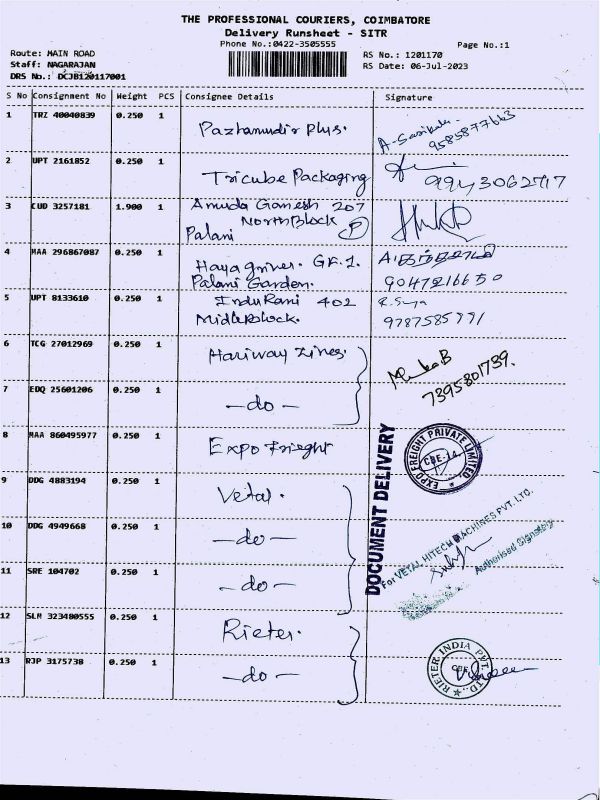 THE PROFESSIONAL COURIERS, COIMBATORE
Delivery Runsheet - SITR
Phone No.:0422-3505555
Page No.:1
Route: MAIN ROAD
RS No.: 1201170
Staff: NAGARAJAN
RS Date: 06-Jul-2023
DRS No.: DCJB120117001
S No Consignment No Weight PCS Consignee Details Signature
1 TRZ 40040839 0.250 1 Pazhamudir plus. A-Sasikala
9585877663
2 UPT 2161852 0.250 1 Tricube Packaging
9943062717
3 CUD 3257181 1.900 1 Amuda Ganesh 207
North Block P
Palani
4 MAA 296867087 0.250 1 Haya griver. GF.1.
Palani Garden. 9047216650
5 UPT 8133610 0.250 1 Indu Rani 402 R. Surya
Middle Block. 9787585791
6 TCG 27012969 0.250 1 Hariway Lines.
7395801739.
7 EDQ 25601206 0.250 1 -do-
8 MAA 860495977 0.250 1 Expo Frieght
EXPO FREIGHT PRIVATE LIMITED
CBE-14
DOCUMENT DELIVERY
9 DDG 4883194 0.250 1 Vetal.
10 DDG 4949668 0.250 1 -do-
For VETAL HITECH MACHINES PVT. LTD.
Authorised Signatory
11 SRE 104702 0.250 1 -do-
12 SLM 323480555 0.250 1 Rieter.
13 RJP 3175738 0.250 1 -do-
RIETER INDIA PVT. LTD.
CBE